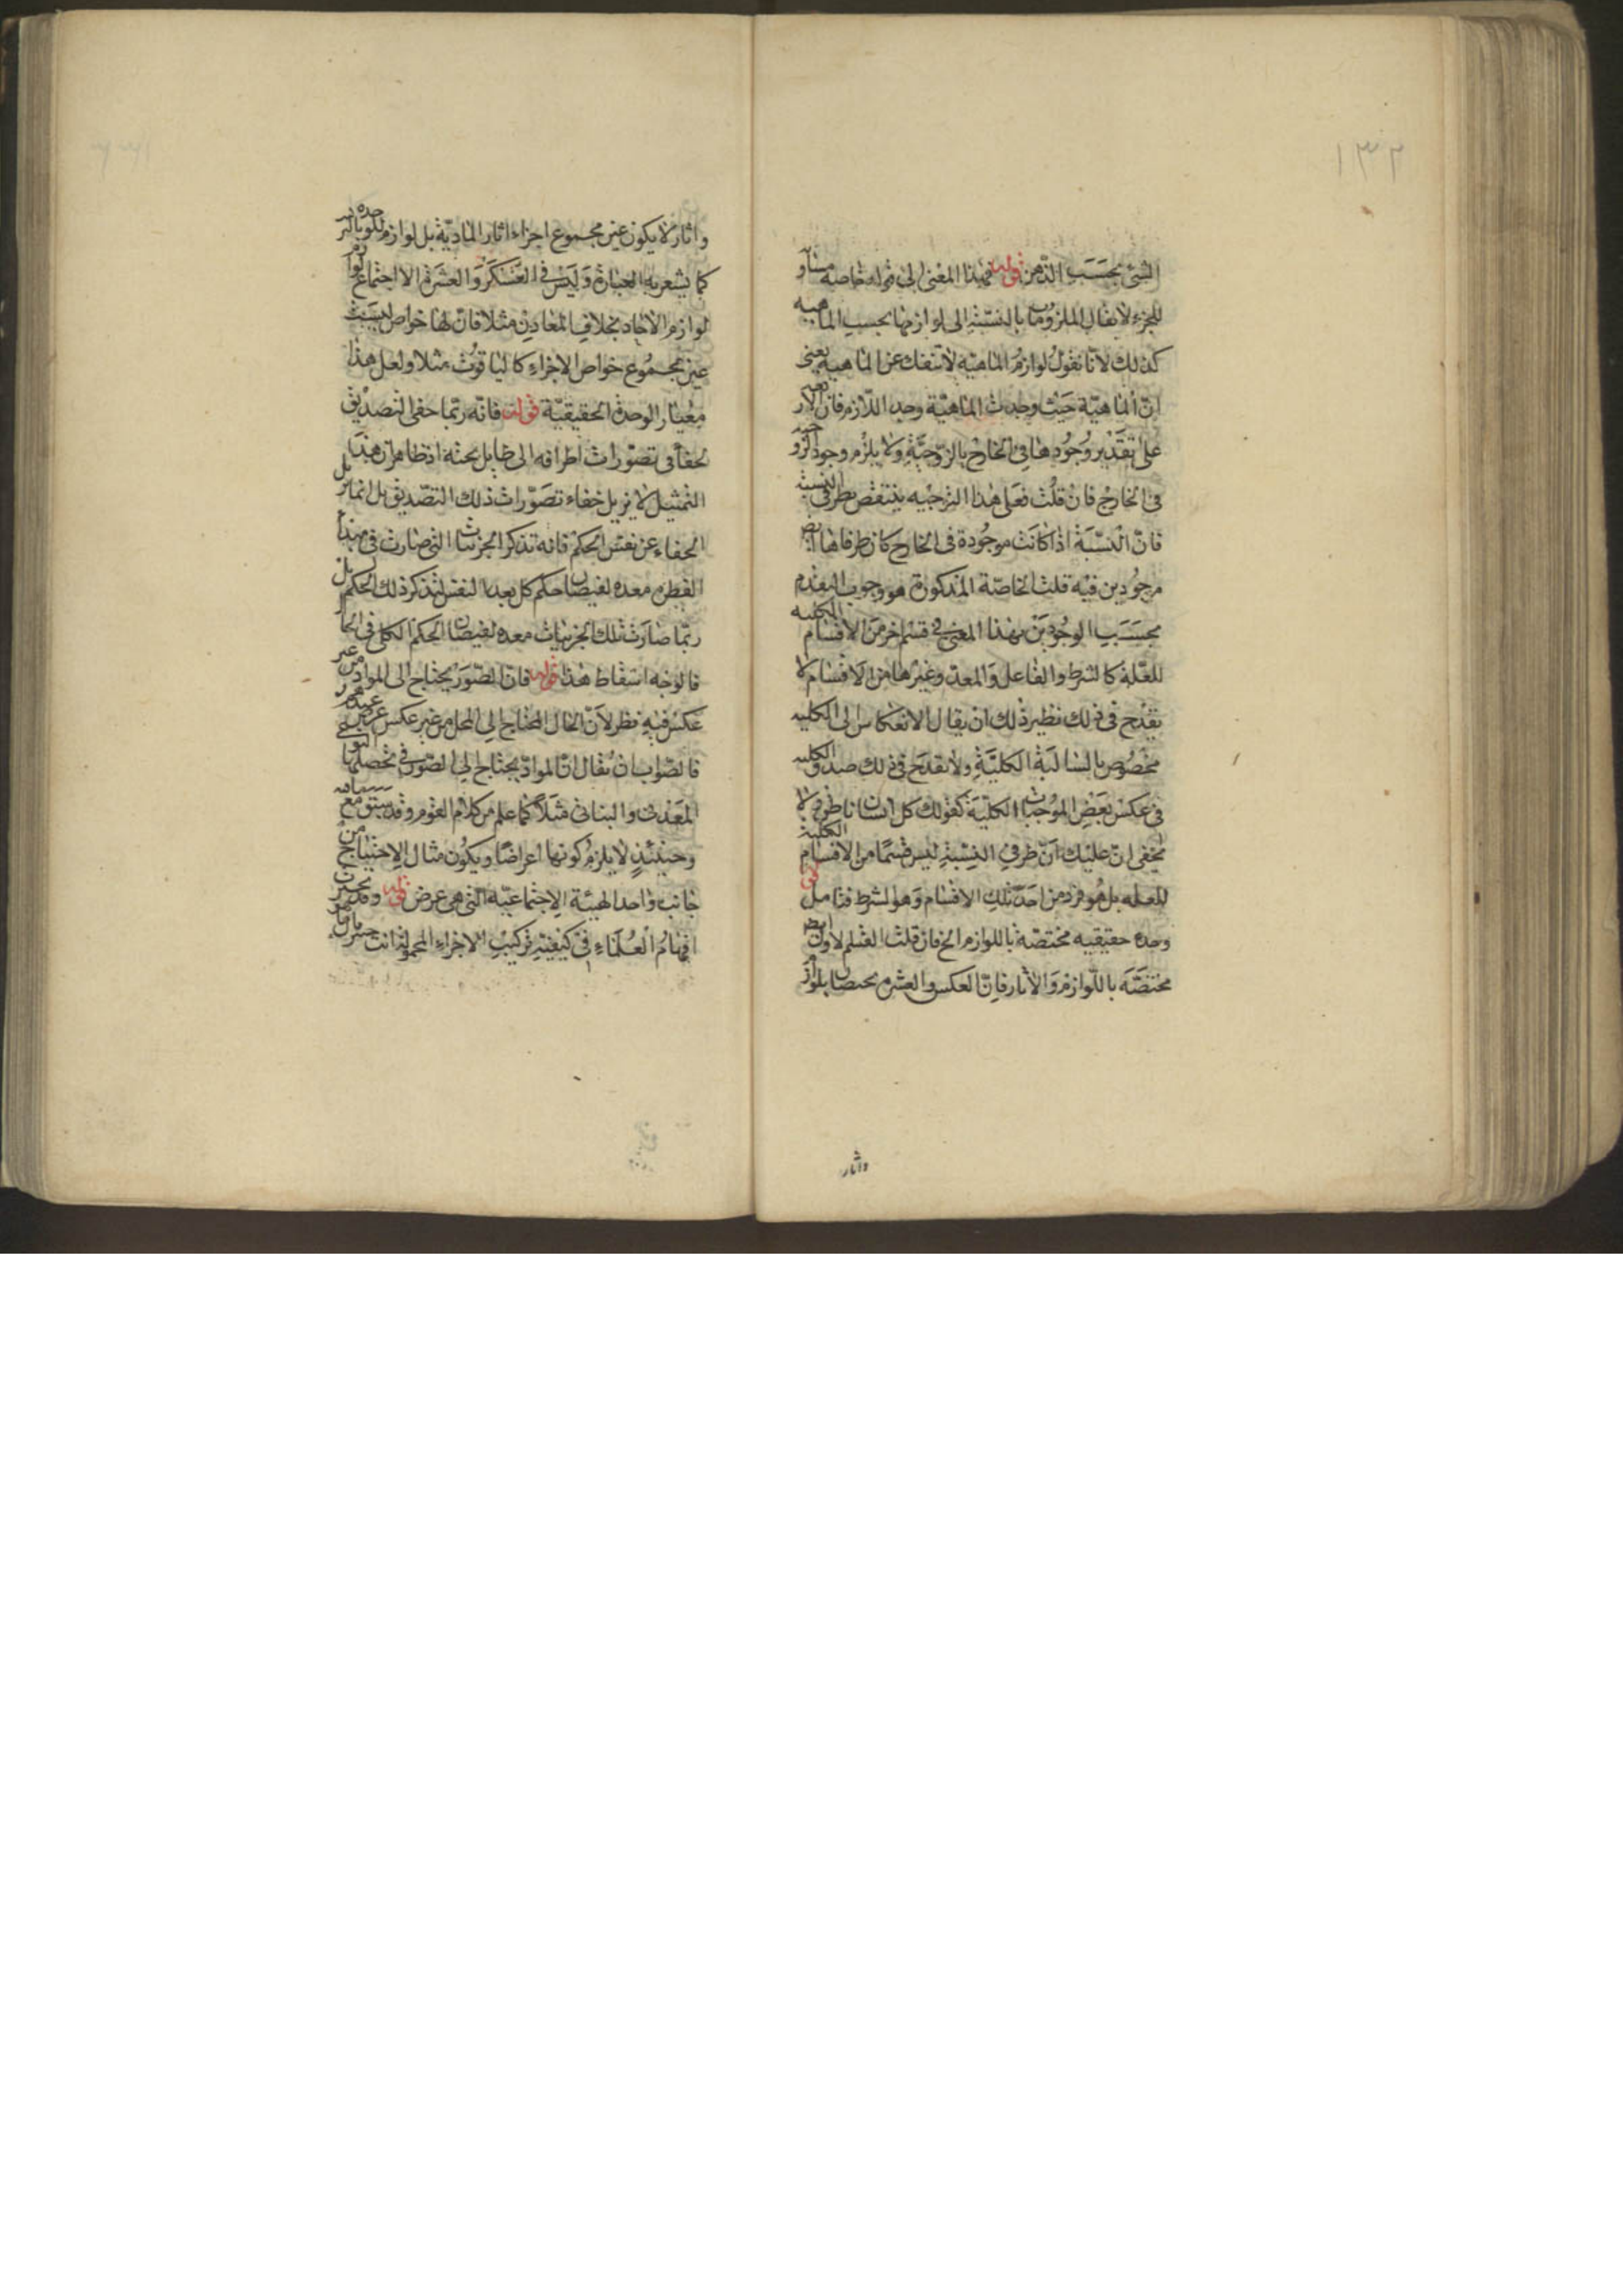 ١٣٢
الشئ بحسب الذهن قوله فهذا المعنى الى قوله خاصة مساوية
للجزء لا يقال الملزومات بالنسبة الى لوازمها بحسب الماهية
كذلك لانا نقول لوازم الماهية لا تنفك عن الماهية يعنى
ان الماهية حيث وجدت الماهية وجد اللازم فان الاربعة
على تقدير وجودها فى الخارج بالزوجية ولا يلزم وجود الزوجية
فى الخارج فان قلت فعلى هذا التوجيه ينتقض بطرفى النسبة
فان النسبة اذا كانت موجودة فى الخارج كان طرفاها ايضا
موجودين فيه قلت الخاصة المذكورة هو وجوب التقدم
بحسب الوجودين بهذا المعنى فى قسم اخر من الاقسام الكلية
للعلة كالشرط والفاعل والمعد وغيرها من الاقسام لا
يقدح فى ذلك نظير ذلك ان يقال الانعكاس الى الكلية
مخصوص بالسالبة الكلية ولا يقدح فى ذلك صدق الكلية
فى عكس بعض الموجبات الكلية كقولك كل انسان ناطق ولا
يخفى ان عليك ان طرفى النسبة ليس قسما من الاقسام الكلية
للعلة بل هو فرد من احد تلك الاقسام وهو الشرط فتامل قوله
وحدة حقيقية مختصة باللوازم الخ فان قلت القسم الاول ايضا
مختصة باللوازم والاثار فان العسكر والعشرة يختصان بلوازم
واثار
واثار لا يكون عين مجموع اجزاء اثار المادية بل لوازم
كما يشعر به العبارة وليس فى العسكر والعشرة الا اجتماع لوازم
لوازم الاحاد بخلاف المعادن مثلا فان لها خواص ليست
عين مجموع خواص الاجزاء كالياقوت مثلا ولعل هذا
معيار الوحدة الحقيقية قوله فانه ربما خفى التصديق
لخفاء فى تصورات اطرافه الى طايل بحثه اذ ظاهر ان هذا
التمثيل لا يزيل خفاء تصورات ذلك التصديق بل انما يزيل
الخفاء عن نفس الحكم فانه تذكر الجزئيات التى صارت فى مبدا
الفطرة معدة لفيضان حكم كل بعد النفس لتذكر ذلك الحكم بل
ربما صارت تلك الجزئيات معدة لفيضان الحكم الكلى فى الحال
فالوجه اسقاط هذا قوله فان الصور يحتاج الى المواد من غير
عكس فيه نظر لان الحال المحتاج الى المحل من غير عكس عرض عندهم
فالصواب ان يقال ان المواد يحتاج الى الصور فى تحصلها
المعدنى والنباتى مثلا كما علم من كلام القوم وقد سبق مع
وحينئذ لا يلزم كونها اعراضا ويكون مثال الاحتياج من
جانب واحد الهيئة الاجتماعية التى هى عرض قوله وقد تحير
افهام العلماء فى كيفية تركيب الاجزاء المحمولة انت